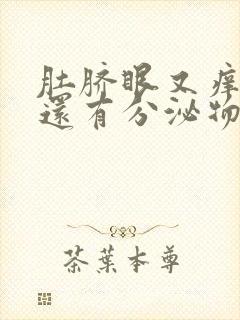 肚脐眼又痒
還有分泌物
茶葉本尊